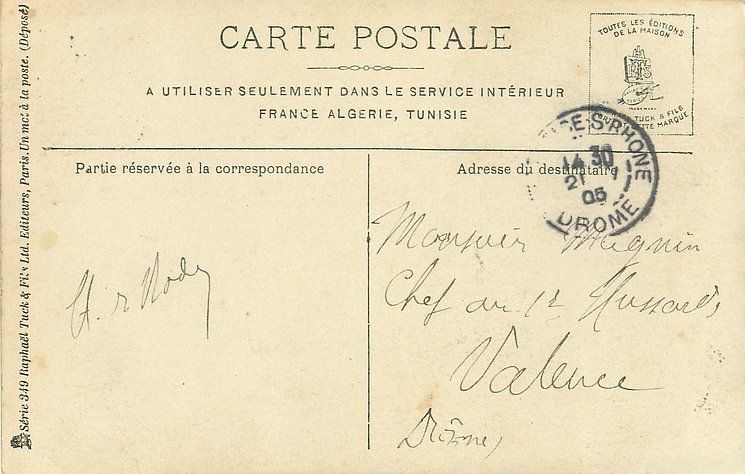 CARTE POSTALE
A UTILISER SEULEMENT DANS LE SERVICE INTÉRIEUR
FRANCE ALGERIE, TUNISIE
TOUTES LES ÉDITIONS
DE LA MAISON
TUCK & FILS
MARQUE
S/RHONE
14 30
21
05
DROME
Partie réservée à la correspondance
Adresse du destinataire
Monsieur Magnin
Chef au 1r Hussards
Valence
Drôme
Série 349 Raphaël Tuck & Fils Ltd. Editeurs, Paris. Un mot à la poste. (Déposé)